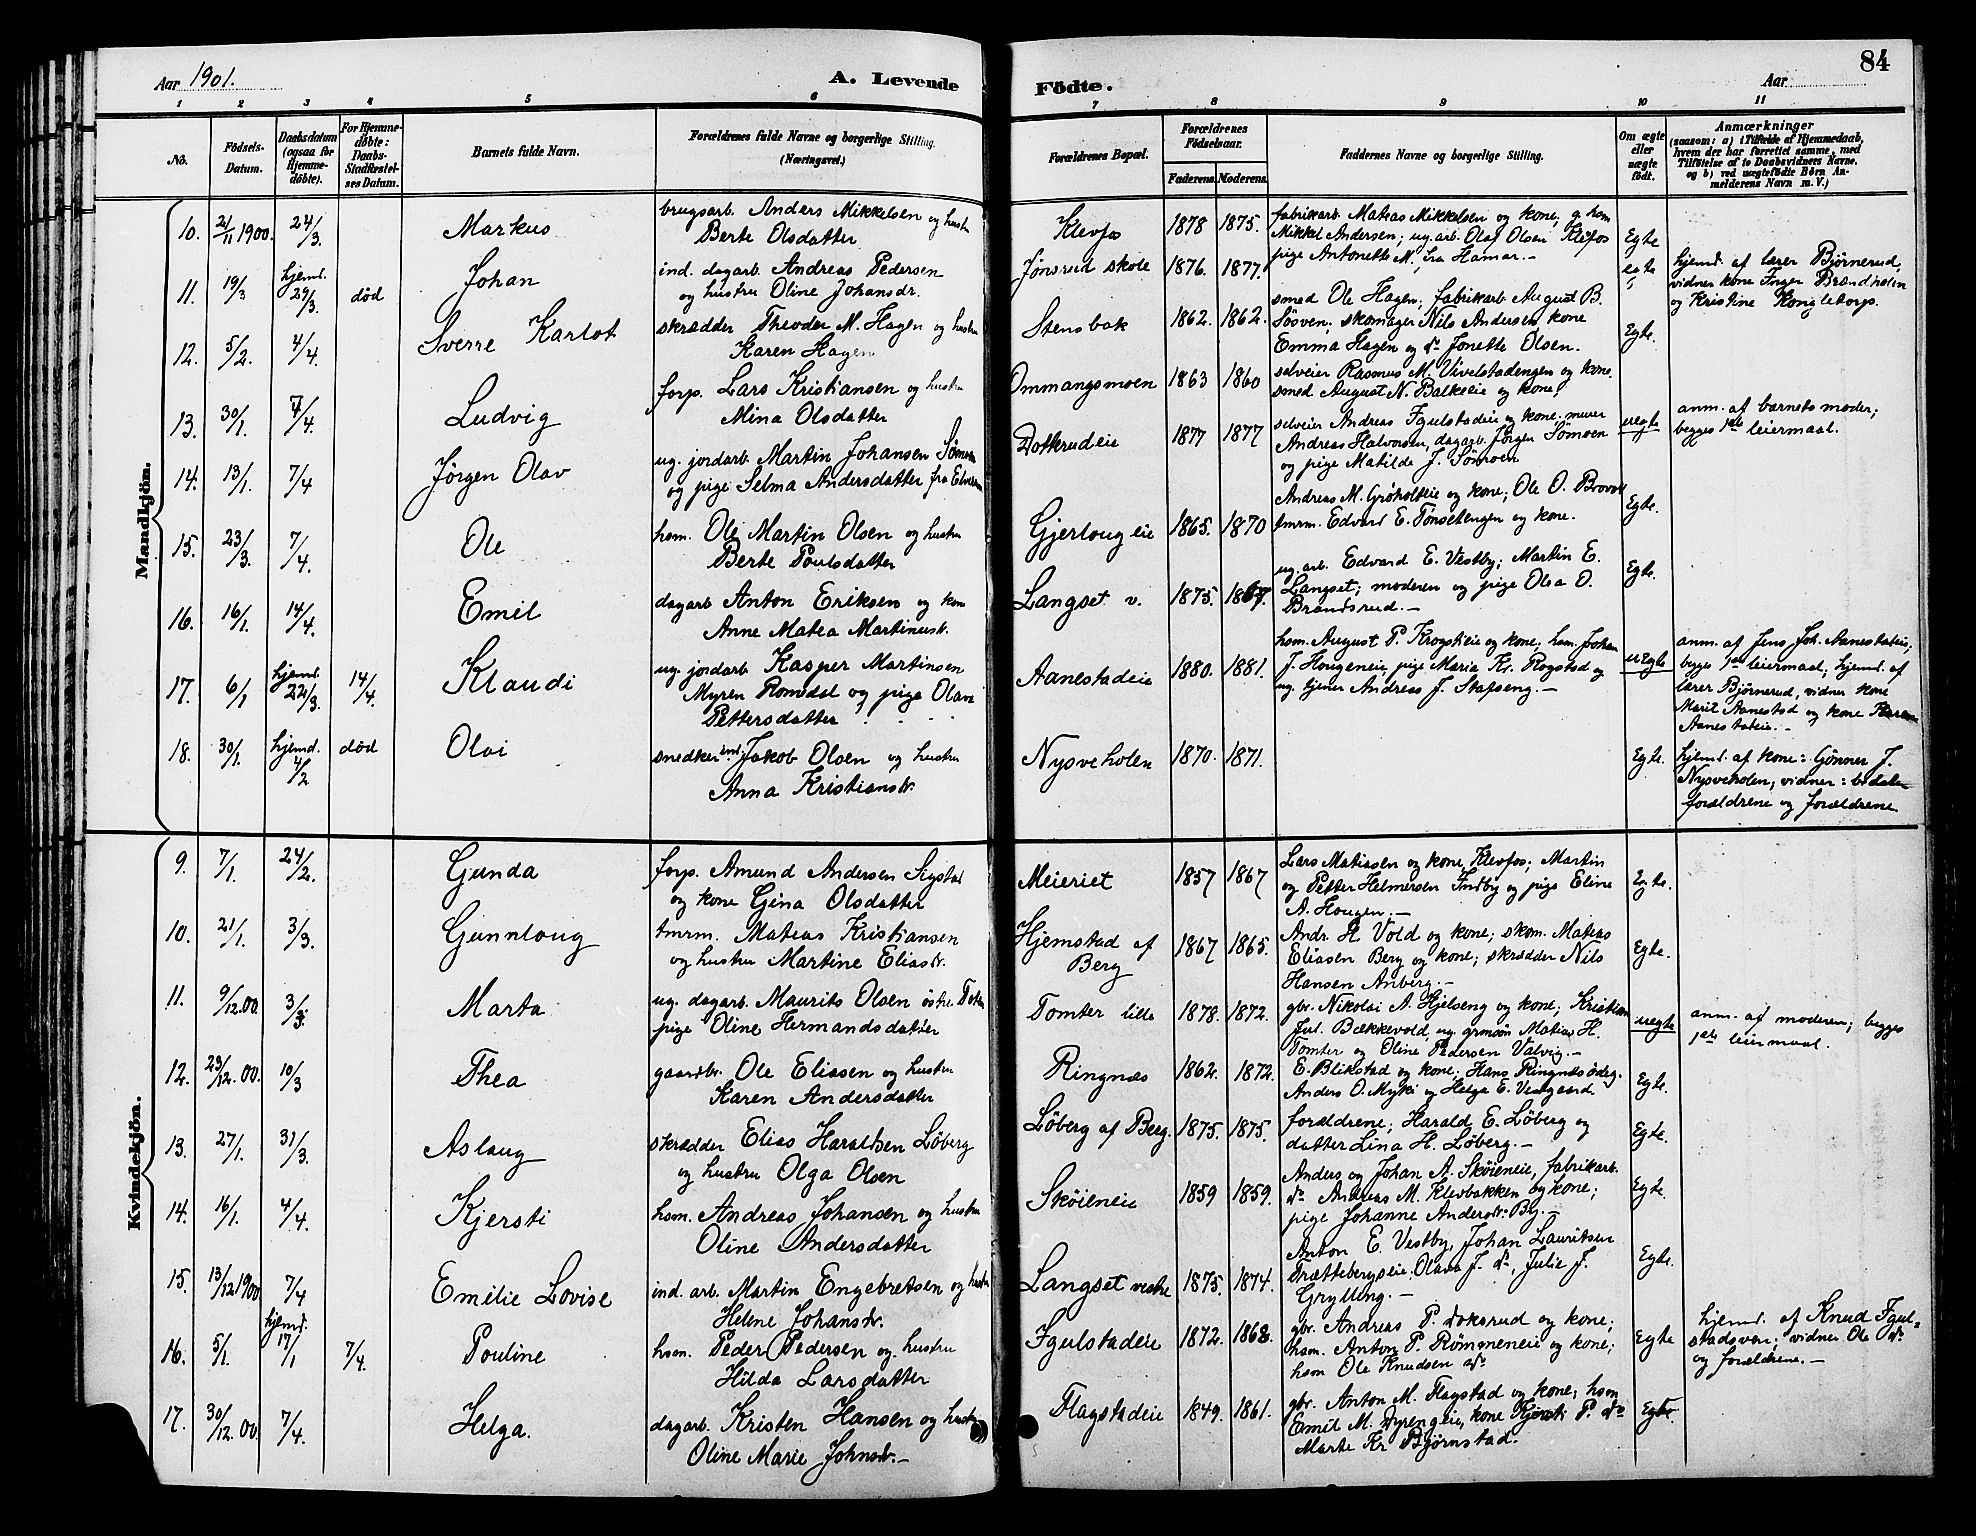 Aar 1901.
A. Levende
Födte.
Aar
84
1 2 3 4 5 6 7 8 9 10 11
No.
Födsels-
Datum.
Daabsdatum
(ogsaa for
Hjemme-
döbte).
For Hjemme-
döbte:
Daabs-
Stadfæstel-
ses Datum.
Barnets fulde Navn.
Forældrenes fulde Navne og borgerlige Stilling.
(Næringsvei.)
Forældrenes Bopæl.
Forældrenes
Födselsaar.
Faderens. Moderens.
Faddernes Navne og borgerlige Stilling.
Om ægte
eller
uægte
födt.
Anmærkninger
(saasom: a) i Tilfælde af Hjemmedaab,
hvem der har forrettet samme, med
Tilföielse af to Daabsvidners Navne.
og b) ved uægtefödte Börn An-
melderens Navn m. V.)
Mandkjön.
10. 21/11 1900. 24/3. Markus
brugsarb. Anders Mikkelsen og hustru
Berte Olsdatter
Klevfos 1878 1875.
fabrikarb. Mateas Mikkelsen og kone, g. hsm
Mikkel Andersen; ug. arb. Olaf Olsen Klefos
pige Antonette M., fra Hamar.—
Egte
11. 19/3 hjemd. 29/3. död Johan
ind. dagarb. Andreas Pedersen
og hustru Oline Johansdr.
Jönsrud skole 1876. 1877.
egte
hjemd. af lærer Björnerud,
vidner kone Inger Brændholen
og Kristine Kongletorp.
12. 5/2. 4/4. Sverre Karlot
skrædder Theodor M. Hagen og hustru
Karen Hagen
Stensbak 1862. 1862.
smed Ole Hagen; fabrikarb August B.
Sösven; skomager Nils Andersen kone
Emma Hagen og do Jonette Olsen.
Egte.
13. 30/1. 7/4. Ludvig
forp. Lars Kristiansen og hustru
Mina Olsdatter
Ommangsmoen 1863 1860
selveier Rasmus M. Vivelstadengen og kone.
smed August N. Balkeeie og kone.
14. 13/1. 7/4 Jörgen Olav
ug. jordarb. Martin Johansen Sömoen
og pige Selma Andersdatter fra Elverum
Dotkrudeie 1877 1877
selveier Andreas Fgulstadeie og kone; murer
Andreas Halvorsen, dagarb. Jörgen Sömoen
og pige Matilde J. Sömoen
uegte
anm. af barnets moder;
begges 1ste leiermaal.
15. 23/3. 7/4. Ole
hsm. Ole Martin Olsen og hustru
Berte Poulsdatter
Gjerlougeie 1865. 1870
Andreas M. Gröholteie og kone; Ole O. Brovold
tmrm. Edvard E. Tonsetengen og kone.
Egte.
16. 16/1. 14/4. Emil
dagarb Anton Eriksen og kone
Anne Matea Martinusdr.
Langset v. 1875. 1867.
ug. arb. Edvard E. Vestby; Martin E.
Langset; moderen og pige Olea O.
Brandsrud.—
Egte.
17. 6/1 hjemd. 22/3. 14/4. Klaudi
ug. jordarb Kasper Martinsen
Myren Romedal og pige Olava
Pettersdatter
Aanestadeie 1880. 1881.
hsm. August P. Krogstieie og kone; hsm. Johan
J. Hougeneie, pige Maria Kr. Rogstad og
ug. tjener Andreas J. Stafseng.—
uEgte
anm. af Jens Joh. Aanestadeie;
begges 1ste leiermaal; hjemd. af
lærer Björnerud, vidner kone
Marit Aanestad og kone Karen
Aanestadeie.—
18. 30/1. hjemd. 4/2 död Olai
snedker ind. Jakob Olsen og hustru
Anna Kristiansdr.
Nysveholen 1870. 1871.
Egte.
hjemd. af kone: Gönner J.
Nysveholen, vidner: bedste-
forældrene og forældrene
Kvindekjön.
9. 7/1. 24/2. Gunda
forp. Amund Andersen Sigstad
og kone Gina Olsdatter
Meieriet 1857 1867
Lars Matiasen og kone, Klevfos; Martin
og Petter Helmersen Indby og pige Eline
A. Hougen.—
Egte.
10. 21/1. 3/3. Gunnloug
tmrm. Mateas Kristiansen
og hustru Martine Eliasdr.
Hjemstad af
Berg
1867 1865.
Andr. H. Vold og kone; skom. Mateas
Eliasen Berg og kone; skrædder Nils
Hansen Anberg.—
Egte.
11. 9/12.00. 3/3. Marta
ug. dagarb. Maurits Olsen östre Toten
pige Oline Hermandsdatter
Tomter lille 1878. 1872.
gbr. Nikolai A. Hjelseng og kone; Kristian
Jul. Bækkevold, ug. grmsön Matias H.
Tomter og Oline Pedersen Valvig.—
uegte
anm. af moderen; begges
1ste leiermaal.
12. 23/12.00. 10/3 Thea
gaardbr. Ole Eliasen og hustru
Karen Andersdatter
Ringnæs 1862. 1872.
E. Blikstad og kone; Hans Ringnæsödeg.
Anders O. Myki og Helga E. Vestgaard.
Egte.
13. 27/1. 31/3. Aslaug
skrædder Elias Haraldsen Löberg
og hustru Olga Olsen
Löberg af Berg. 1875. 1875.
forældrene; Harald E. Löberg og
datter Lina H. Löberg.—
Egte.
14. 16/1. 4/4. Kjersti
hsm. Andreas Johansen og hustru
Oline Andersdatter
Sköieneie 1859 1859.
Anders og Johan A. Sköieneie, fabrikarb.
do Andreas M. Klevbakken og kone;
pige Johanne Andersdr. By.—
Egte.
15. 13/12 1900 7/4 Emilie Lovise
ind. arb. Martin Engebretsen og hustru
Helene Johansdr.
Langset vestre 1875. 1874.
Anton E. Vestby, Johan Lauritsen
Trættebergseie, Olava J. do, Julie J.
Grylling.—
Egte.
16. 5/1. hjemd. 17/1 7/4. Pouline
hsm. Peder Pedersen og hustru
Hilda Larsdatter
Fgulstadeie 1872. 1868.
gbr. Andreas P. Doksrud og kone;
hsm. Anton P. Römmeneie og kone;
hsm Ole Knudsen do
Egte
hjemd. af Knud Fgul-
stadsven; vidner Ole do
og forældrene.—
17. 30/12.00. 7/4. Helga.
dagarb. Kristen Hansen og hustru
Oline Marie Johnsdr.—
Flagstadeie 1849. 1861.
gbr. Anton M. Flagstad og kone; hsm
Emil M. Dyrengeie, kone Kjersti P. do
Marte Kr Björnstad.
Egte.